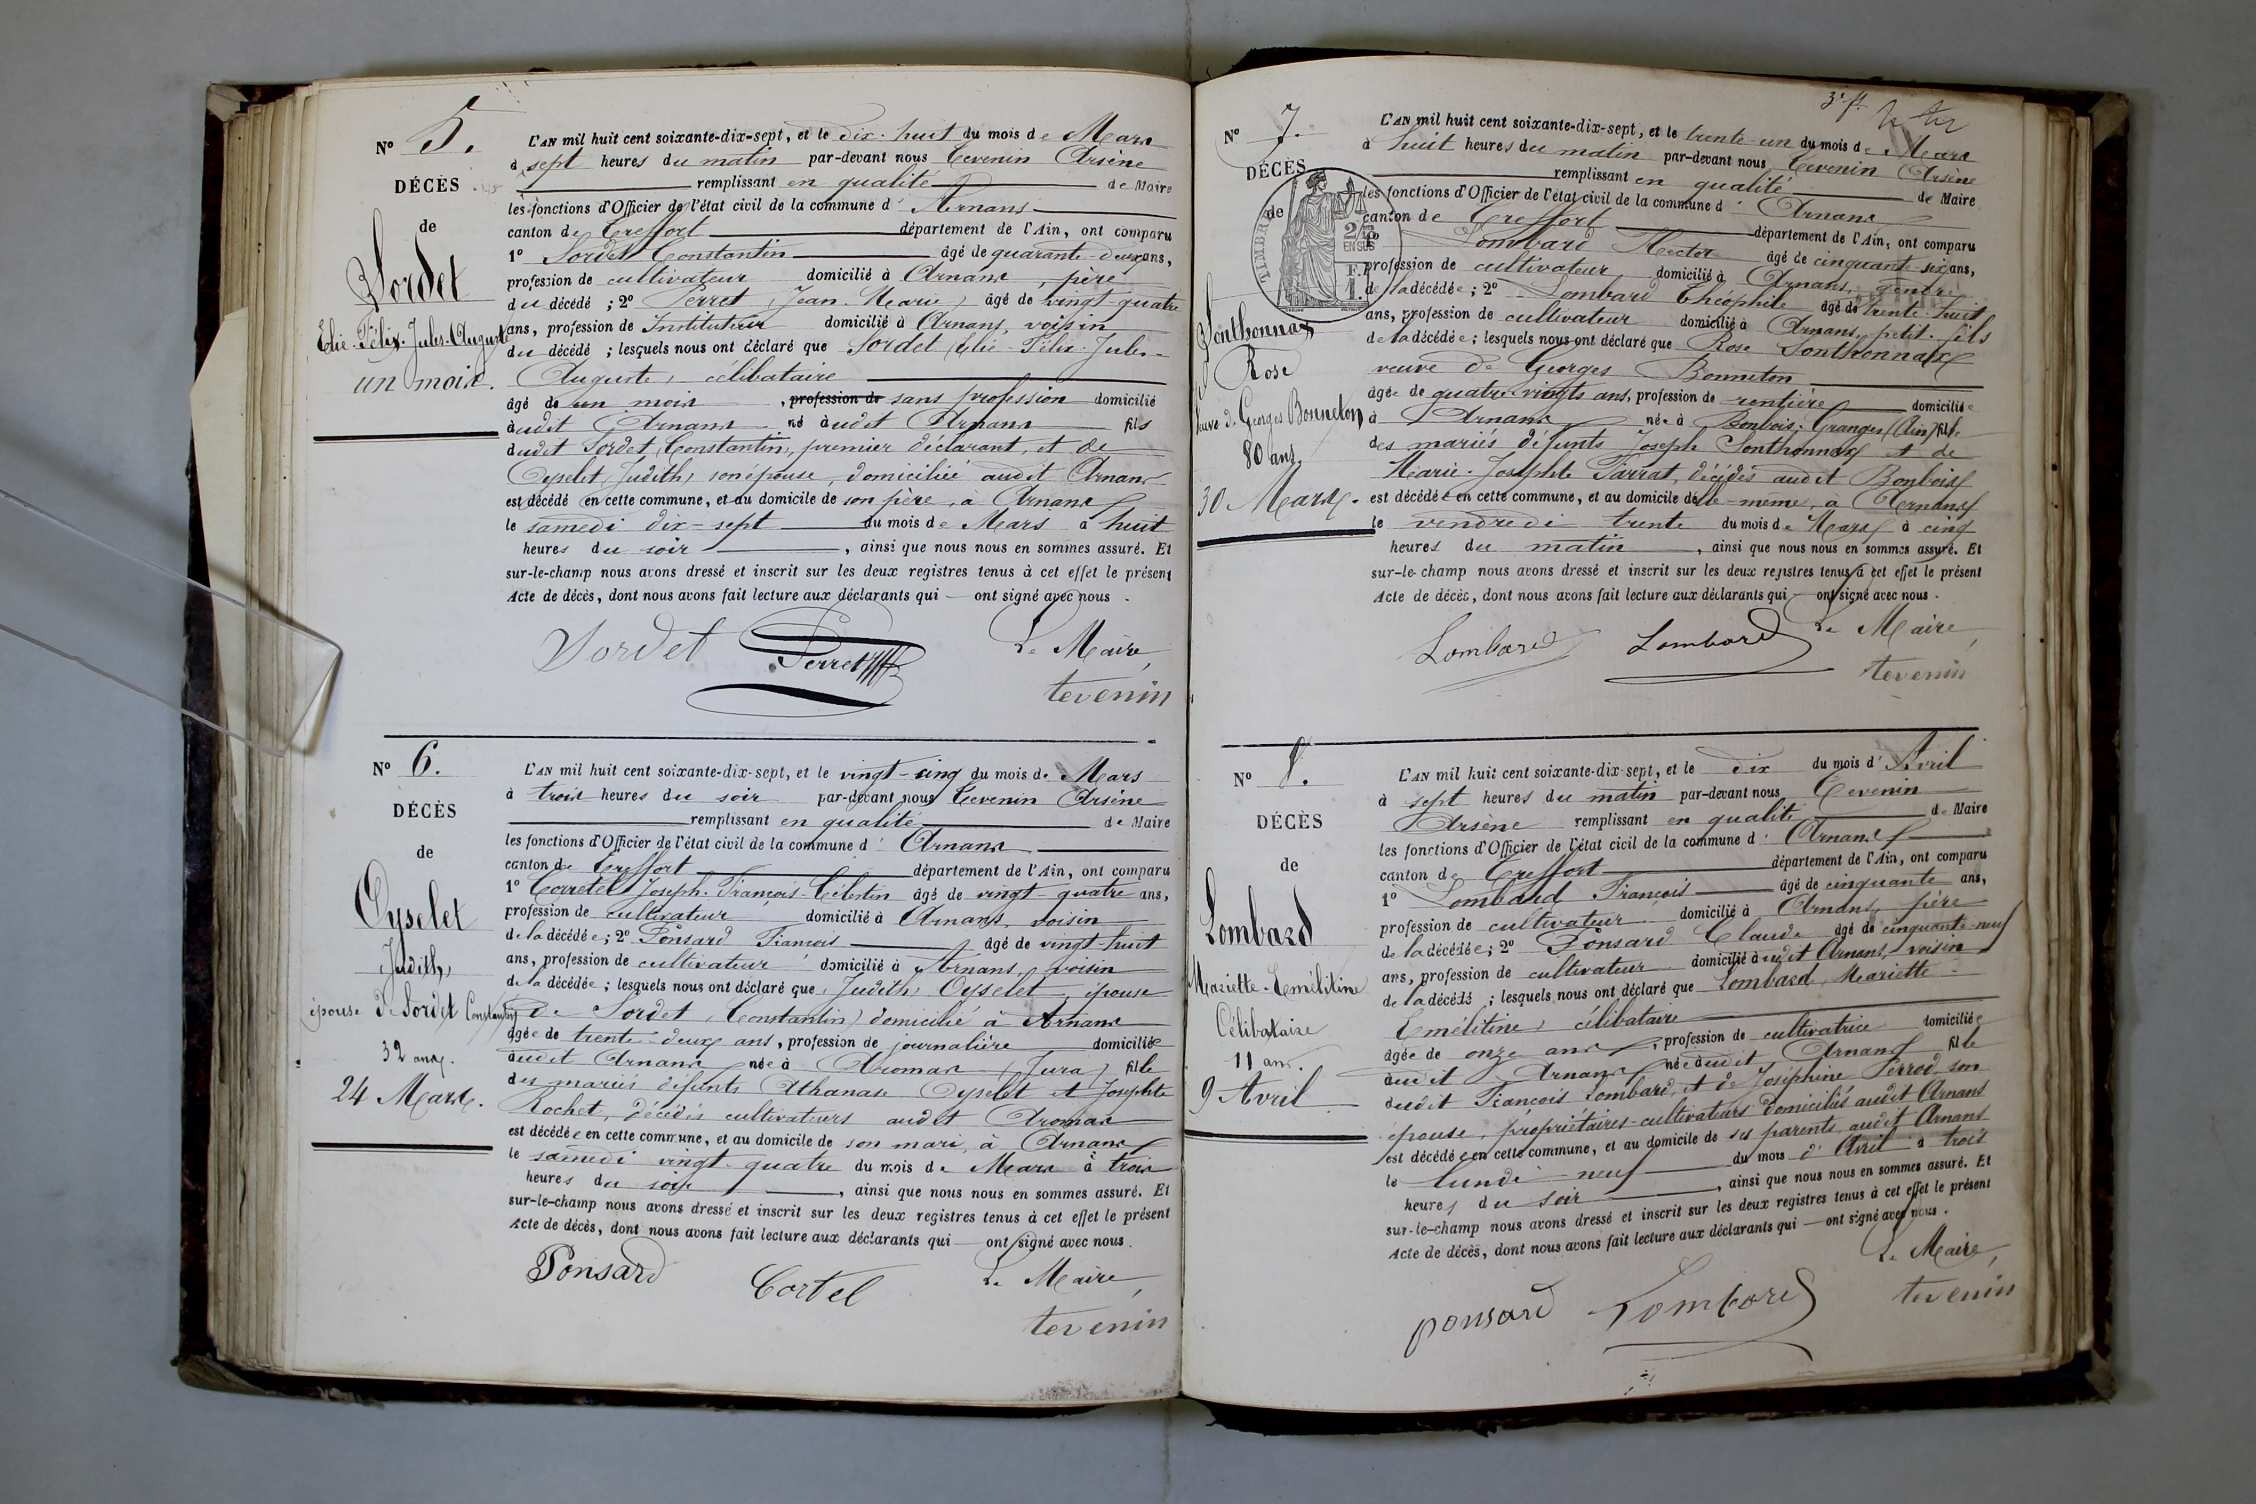 N° 5.
DÉCÈS
de
Sordet
Elie-Félix-Jules-Auguste
un mois.
L'AN mil huit cent soixante-dix-sept, et le dix-huit du mois de Mars
à sept heures du matin par-devant nous Tevenin Arsène
remplissant en qualité de Maire
les fonctions d'Officier de l'état civil de la commune d' Arnans
canton de Treffort département de l'Ain, ont comparu
1° Sordet Constantin âgé de quarante-deux ans,
profession de cultivateur domicilié à Arnans, père
du décédé ; 2° Perret, Jean-Marie, âgé de vingt-quatre
ans, profession de Instituteur domicilié à Arnans, voisin
du décédé ; lesquels nous ont déclaré que Sordet Elie-Félix-Jules-
Auguste, célibataire
âgé de un mois, profession de sans profession domicilié
audit Arnans né audit Arnans fils
dudit Sordet, Constantin, premier déclarant, et de
Oyselet, Judith, son épouse, domiciliée audit Arnans
est décédé en cette commune, et au domicile de son père, à Arnans
le samedi dix-sept du mois de Mars à huit
heures du soir, ainsi que nous nous en sommes assuré. Et
sur-le-champ nous avons dressé et inscrit sur les deux registres tenus à cet effet le présent
Acte de décès, dont nous avons fait lecture aux déclarants qui — ont signé avec nous.
Sordet Perret Le Maire,
tevenin
N° 6.
DÉCÈS
de
Oyselet
Judith,
épouse de Sordet Constantin
32 ans.
24 Mars.
L'AN mil huit cent soixante-dix-sept, et le vingt-cinq du mois de Mars
à trois heures du soir par-devant nous Tevenin Arsène
remplissant en qualité de Maire
les fonctions d'Officier de l'état civil de la commune d' Arnans
canton de Treffort département de l'Ain, ont comparu
1° Joseph-François-Célestin âgé de vingt-quatre ans,
profession de cultivateur domicilié à Arnans, voisin
de la décédée ; 2° Ponsard François âgé de vingt-huit
ans, profession de cultivateur domicilié à Arnans, voisin
de la décédée ; lesquels nous ont déclaré que Judith Oyselet, épouse
de Sordet, Constantin, domicilié à Arnans
âgée de trente-deux ans, profession de journalière domiciliée
audit Arnans née à Aromas (Jura) fille
des mariés défunts Athanase Oyselet et Josephte
Rochet, décédés cultivateurs audit Aromas
est décédée en cette commune, et au domicile de son mari, à Arnans
le samedi vingt-quatre du mois de Mars à trois
heures du soir, ainsi que nous nous en sommes assuré. Et
sur-le-champ nous avons dressé et inscrit sur les deux registres tenus à cet effet le présent
Acte de décès, dont nous avons fait lecture aux déclarants qui — ont signé avec nous.
Ponsard Cortel Le Maire,
tevenin
3e ft
N° 7.
DÉCÈS
de
TIMBRE
2/10
EN SUS
F.
1.
Sonthonnax
Rose
veuve de Georges Bonneton
80 ans
30 Mars.
L'AN mil huit cent soixante-dix-sept, et le trente-un du mois de Mars
à huit heures du matin par-devant nous Tevenin Arsène
remplissant en qualité de Maire
les fonctions d'Officier de l'état civil de la commune d' Arnans
canton de Treffort département de l'Ain, ont comparu
Lombard Hector âgé de cinquante-six ans,
profession de cultivateur domicilié à Arnans, gendre
de la décédée ; 2° Lombard Théophile âgé de trente-huit
ans, profession de cultivateur domicilié à Arnans, petit-fils
de la décédée ; lesquels nous ont déclaré que Rose Sonthonnax
veuve de Georges Bonneton
âgée de quatre-vingts ans, profession de rentière domiciliée
à Arnans née à Bonbois, Granges (Ain) fille
des mariés défunts Joseph Sonthonnax et de
Marie-Josephte Parrat, décédés audit Bonbois
est décédée en cette commune, et au domicile d'elle-même, à Arnans
le vendredi trente du mois de Mars à cinq
heures du matin, ainsi que nous nous en sommes assuré. Et
sur-le-champ nous avons dressé et inscrit sur les deux registres tenus à cet effet le présent
Acte de décès, dont nous avons fait lecture aux déclarants qui — ont signé avec nous.
Lombard Lombard Le Maire,
tevenin
N° 8.
DÉCÈS
de
Lombard
Mariette-Emélitine
Célibataire
11 ans.
9 Avril
L'AN mil huit cent soixante-dix-sept, et le dix du mois d' Avril
à sept heures du matin par-devant nous Tevenin
Arsène remplissant en qualité de Maire
les fonctions d'Officier de l'état civil de la commune d' Arnans
canton de Treffort département de l'Ain, ont comparu
1° Lombard François âgé de cinquante ans,
profession de cultivateur domicilié à Arnans, père
de la décédée ; 2° Ponsard Claude âgé de cinquante-neuf
ans, profession de cultivateur domicilié audit Arnans, voisin
de la décédé ; lesquels nous ont déclaré que Lombard, Mariette-
Emélitine, célibataire
âgée de onze ans, profession de cultivatrice domiciliée
audit Arnans née audit Arnans fille
dudit François Lombard, et de Joséphine Perrod son
épouse, propriétaires-cultivateurs domiciliés audit Arnans
est décédée en cette commune, et au domicile de ses parents audit Arnans
le lundi neuf du mois d' Avril à trois
heures du soir, ainsi que nous nous en sommes assuré. Et
sur-le-champ nous avons dressé et inscrit sur les deux registres tenus à cet effet le présent
Acte de décès, dont nous avons fait lecture aux déclarants qui — ont signé avec nous.
Le Maire,
ponsard Lombard tevenin